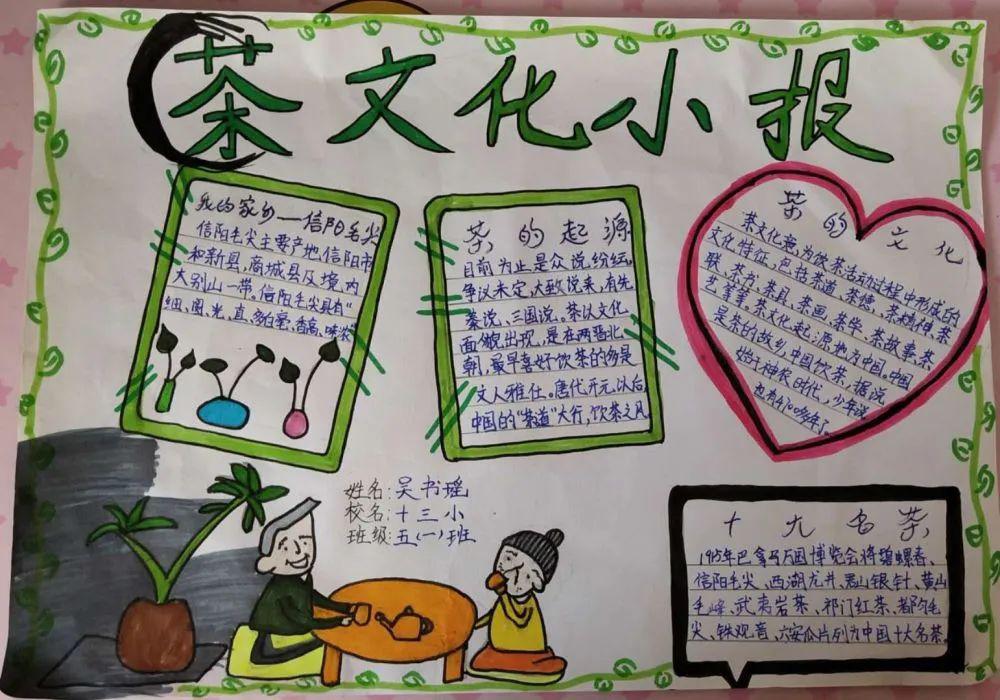 茶文化小报
我的家乡——信阳毛尖
信阳毛尖主要产地信阳市
和新县,商城县及境内
大别山一带。信阳毛尖具有"
细、圆、光、直、多白毫、香高、味浓
茶的起源
目前为止是众说纷纭,
争议未定,大致说来,有先
秦说、三国说,茶以文化
面貌出现,是在两晋北
朝,最早喜好饮茶的多是
文人雅仕。唐代开元以后,
中国的"茶道"大行,饮茶之风
茶的文化
茶文化意为饮茶活动过程中形成的
文化特征,包括茶道、茶德、茶精神、茶
联、茶书、茶具、茶画、茶学、茶故事、茶
艺等等。茶文化起源地为中国。中国
是茶的故乡,中国饮茶,据说
始于神农时代,少年说
也有4700多年了
姓名:吴书瑶
校名:十三小
班级:五(一)班
十大名茶
1915年巴拿马万国博览会将碧螺春、
信阳毛尖、西湖龙井、君山银针、黄山
毛峰、武夷岩茶、祁门红茶、都匀毛
尖、铁观音、六安瓜片列为中国十大名茶。